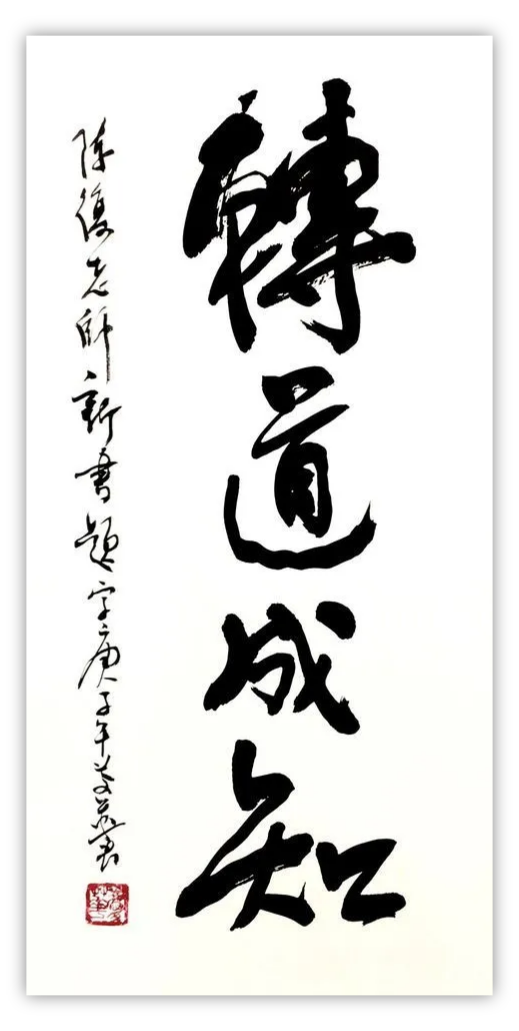 轉道成知
陳復老師新書題字庚子年